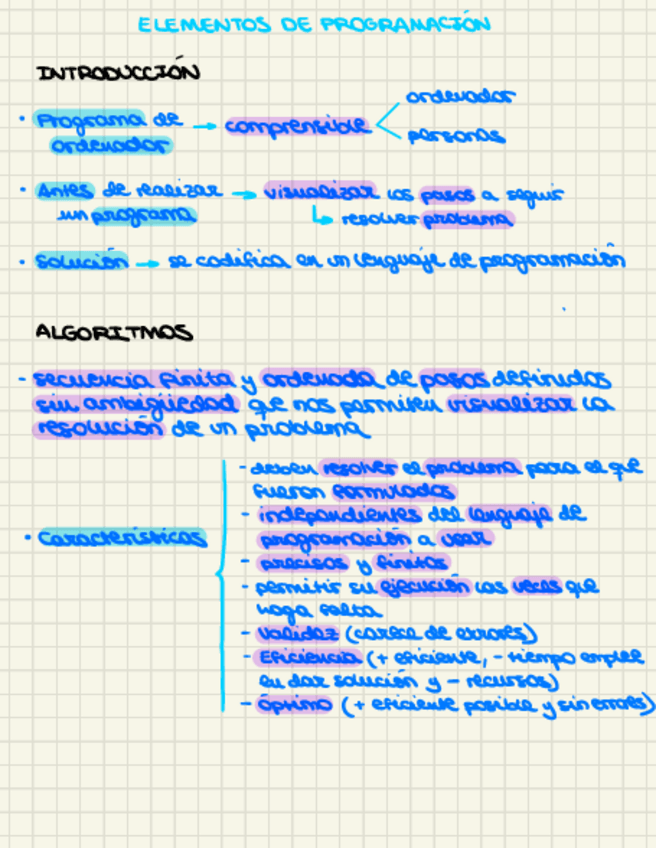 ELEMENTOS DE PROGRAMACIÓN
INTRODUCCIÓN
ordenador
• Programa de → comprensible
ordenador
personas
• Antes de realizar → visualizar los pasos a seguir
un programa
↳ resolver problema
• Solución → se codifica en un lenguaje de programación
ALGORITMOS
- secuencia finita y ordenada de pasos definidos
sin ambigüedad que nos permiten visualizar la
resolución de un problema
- deben resolver el problema para el que
fueron formulados
- independientes del lenguaje de
• Características
programación a usar
- precisos y finitos
- permitir su ejecución las veces que
haga falta
- Validez (carece de errores)
- Eficiencia (+ eficiente, - tiempo emplee
en dar solución y - recursos)
- Óptimo (+ eficiente posible y sin errores)